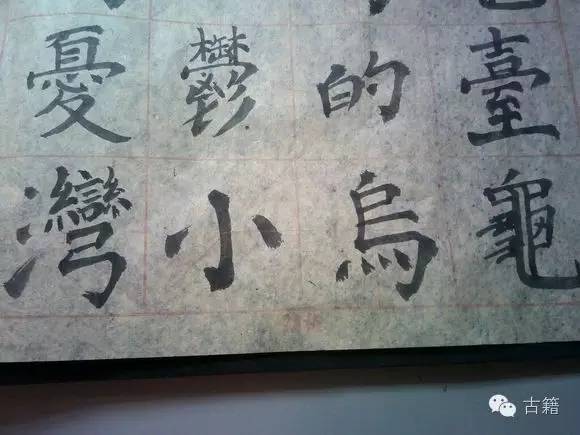 憂鬱的臺
灣小烏龜
古籍